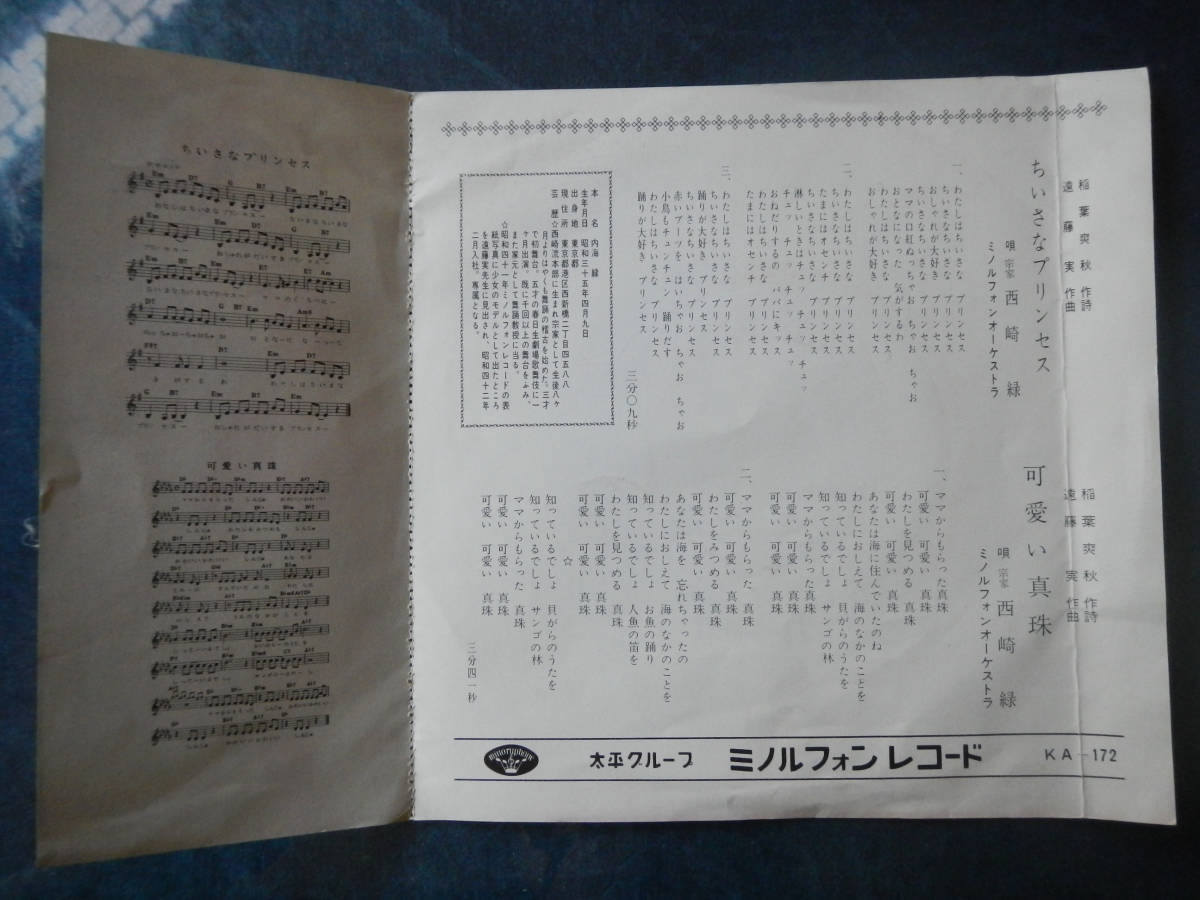 ちいさなプリンセス
稲葉爽秋 作詩
遠藤実 作曲
唄 宗家 西崎緑
ミノルフォンオーケストラ
一、わたしはちいさな プリンセス
ちいさなちいさな プリンセス
おしゃれが大好き プリンセス
ママの口紅ぬっちゃお ちゃお ちゃお
おとなになった 気がするわ
わたしはちいさな プリンセス
おしゃれが大好き プリンセス
二、わたしはちいさな プリンセス
ちいさなちいさな プリンセス
たまにはオセンチ プリンセス
淋しいときはチュッ チュッ チュッ
チュッ チュッ チュッ チュッ チュッ
おねだりするの パパにキッス
わたしはちいさな プリンセス
たまにはオセンチ プリンセス
三、わたしはちいさな プリンセス
ちいさなちいさな プリンセス
踊りが大好き プリンセス
赤いブーツを はいちゃお ちゃお ちゃお
小鳥もチュンチュン 踊りだす
わたしはちいさな プリンセス
踊りが大好き プリンセス
三分〇九秒
本名 内海 緑
生年月日 昭和三十五年四月九日
出身地 東京都
現住所 東京都港区西新橋二丁目四五八八
芸歴 ☆西崎流本部に生まれ宗家として生後八ヶ
月よりはやくも舞踊の稽古を始めた。三才
で初舞台。五才の春日生劇場歌舞伎に一
ヶ月出演。既に千回以上の舞台をふみ、
また家元として舞踊教授に当る。
☆昭和四十一年ミノルフォンレコードの表
紙写真に少女のモデルとして出たところ
を遠藤実先生に見出され、昭和四十二年
二月入社。専属となる。
可愛い真珠
稲葉爽秋 作詩
遠藤実 作曲
唄 宗家 西崎緑
ミノルフォンオーケストラ
一、ママからもらった真珠
可愛い 可愛い 真珠
わたしを見つめる 真珠
可愛い 可愛い 真珠
あなたは海に住んでいたのね
わたしにおしえて 海のなかのことを
知っているでしょ 貝がらのうたを
知っているでしょ サンゴの林
ママからもらった真珠
可愛い 可愛い 真珠
可愛い 可愛い 真珠
二、ママからもらった 真珠
可愛い 可愛い 真珠
わたしをみつめる 真珠
可愛い 可愛い 真珠
あなたは海を 忘れちゃったの
わたしにおしえて 海のなかのことを
知っているでしょ お魚の踊り
知っているでしょ 人魚の笛を
わたしを見つめる 真珠
可愛い 可愛い 真珠
可愛い 可愛い 真珠
☆
知っているでしょ 貝がらのうたを
知っているでしょ サンゴの林
ママからもらった 真珠
可愛い 可愛い 真珠
可愛い 可愛い 真珠
三分四一秒
ちいさなプリンセス
可愛い真珠
minoryphone
太平グループ
ミノルフォンレコード
KA-172